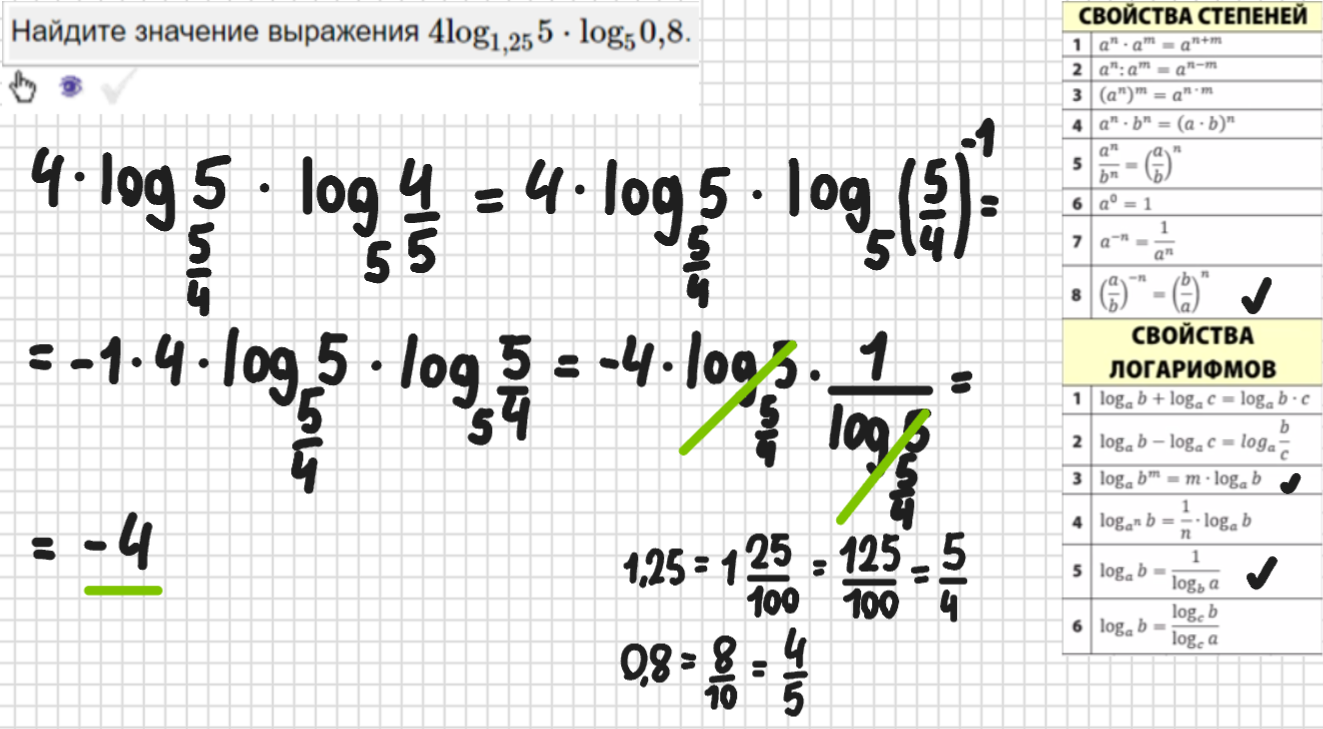 Найдите значение выражения 4log₁,₂₅ 5 · log₅ 0,8.
4 · log_(5/4) 5 · log_5 (4/5) = 4 · log_(5/4) 5 · log_5 (5/4)⁻¹ =
= -1 · 4 · log_(5/4) 5 · log_5 (5/4) = -4 · log_(5/4) 5 · 1/(log_(5/4) 5) =
= -4
1,25 = 1 25/100 = 125/100 = 5/4
0,8 = 8/10 = 4/5
СВОЙСТВА СТЕПЕНЕЙ
1 aⁿ · aᵐ = aⁿ⁺ᵐ
2 aⁿ : aᵐ = aⁿ⁻ᵐ
3 (aⁿ)ᵐ = aⁿ·ᵐ
4 aⁿ · bⁿ = (a · b)ⁿ
5 aⁿ/bⁿ = (a/b)ⁿ
6 a⁰ = 1
7 a⁻ⁿ = 1/aⁿ
8 (a/b)⁻ⁿ = (b/a)ⁿ ✓
СВОЙСТВА
ЛОГАРИФМОВ
1 logₐ b + logₐ c = logₐ b · c
2 logₐ b − logₐ c = logₐ b/c
3 logₐ bᵐ = m · logₐ b ✓
4 log_(aⁿ) b = 1/n · logₐ b
5 logₐ b = 1/(log_b a) ✓
6 logₐ b = (log_c b)/(log_c a)